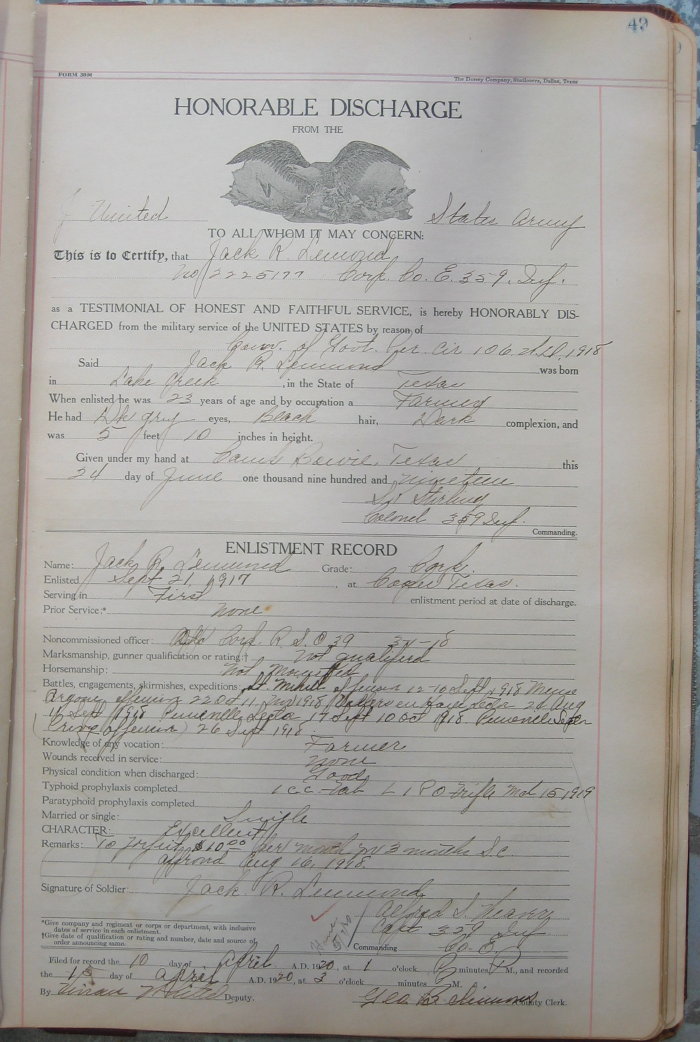 49
FORM 3096
The Dorsey Company, Stationers, Dallas, Texas
HONORABLE DISCHARGE
FROM THE
United States Army
TO ALL WHOM IT MAY CONCERN:
This is to Certify, that Jack R. Lemond
No 2225177 Corp. Co. E. 359. Inf.
as a TESTIMONIAL OF HONEST AND FAITHFUL SERVICE, is hereby HONORABLY DIS-
CHARGED from the military service of the UNITED STATES by reason of
Conv. of Govt. Per. Cir 106. W.D. 1918
Said Jack R. Lemmond was born
in Lake Creek, in the State of Texas
When enlisted he was 23 years of age and by occupation a Farmer
He had Dk gry eyes, Black hair, Dark complexion, and
was 5 feet 10 inches in height.
Given under my hand at Camp Bowie, Texas this
24 day of June one thousand nine hundred and nineteen
Stirling
Colonel 359 Inf.
Commanding.
ENLISTMENT RECORD
Name: Jack R. Lemmond Grade: Corp.
Enlisted Sept 21, 1917, at Cooper Texas.
Serving in First enlistment period at date of discharge.
Prior Service:* none
Noncommissioned officer: Corp R. S. O 39
Marksmanship, gunner qualification or rating:† Not qualified
Horsemanship: Not Mounted
Battles, engagements, skirmishes, expeditions: St. Mihiel offensive 12-10 Sept 1918 Meuse
Argonne offensive 22 Oct 11 Nov 1918 Sector 26 Aug
11 Sept 1918 Sector 17 Sept 10 Oct 1918.
offensive) 26 Sept 1918
Knowledge of any vocation: Farmer
Wounds received in service: None
Physical condition when discharged: Good
Typhoid prophylaxis completed 1919
Paratyphoid prophylaxis completed
Married or single: Single
CHARACTER: Excellent
Remarks: To forfeit $10.00 per month for 3 months S.C.
approvd Aug 16, 1918.
Signature of Soldier: Jack R. Lemmond
Alfred S.
Capt 359 Inf
Commanding Co. E
*Give company and regiment or corps or department, with inclusive
dates of service in each enlistment.
†Give date of qualification or rating and number, date and source of
order announcing same.
Filed for record the 10 day of April A.D. 1920, at 1 o'clock minutes P M., and recorded
the day of April A.D. 1920, at 2 o'clock minutes P M.
By Vivian White Deputy. Geo B. Simmons County Clerk.